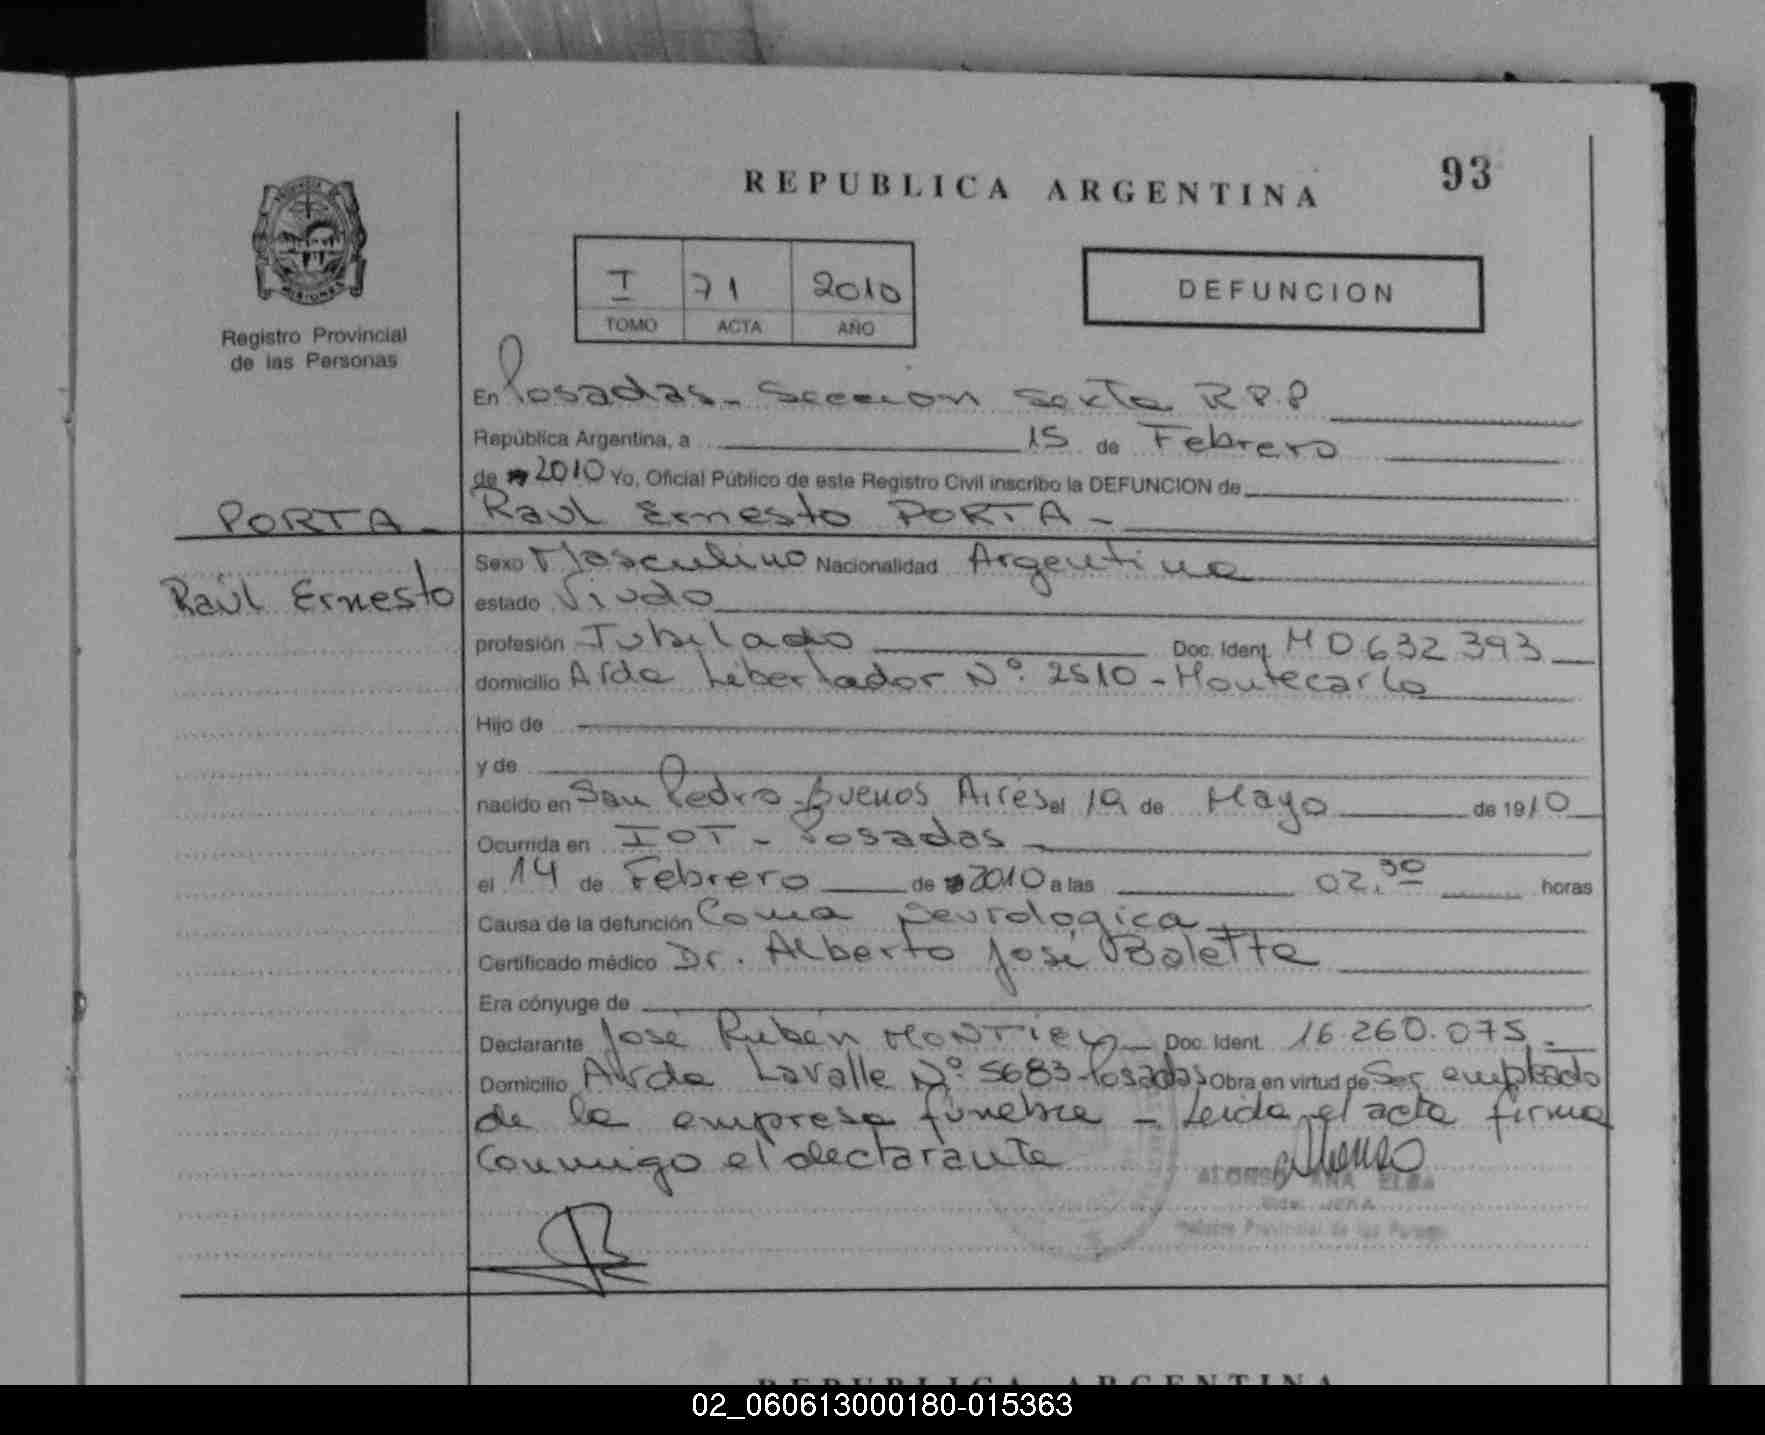 REPUBLICA ARGENTINA
93
I 71 2010
TOMO ACTA AÑO
DEFUNCION
MISIONES
Registro Provincial
de las Personas
En Posadas - Sección Sexta R.P.P
República Argentina, a 15 de Febrero
de 2010 Yo, Oficial Público de este Registro Civil inscribo la DEFUNCION de
Raul Ernesto PORTA -
PORTA -
Raúl Ernesto
Sexo Masculino Nacionalidad Argentina
estado Viudo
profesión Jubilado Doc. Ident. M 0632393
domicilio Avda Libertador Nº. 2510 - Montecarlo
Hijo de
y de
nacido en San Pedro - Buenos Aires el 19 de Mayo de 1910
Ocurrida en IOT - Posadas -
el 14 de Febrero de 2010 a las 02.30 horas
Causa de la defunción Coma Neurologica
Certificado médico Dr. Alberto José Baletta
Era cónyuge de
Declarante José Rubén MONTIEL Doc. Ident. 16.260.075.
Domicilio Avda Lavalle Nº. 5683 - Posadas Obra en virtud de Ser empleado
de la empresa fúnebre - Leida el acta firma
conmigo el declarante
ALONSO ANA ELBA
Registro Provincial de las Personas
REPUBLICA ARGENTINA
02_060613000180-015363